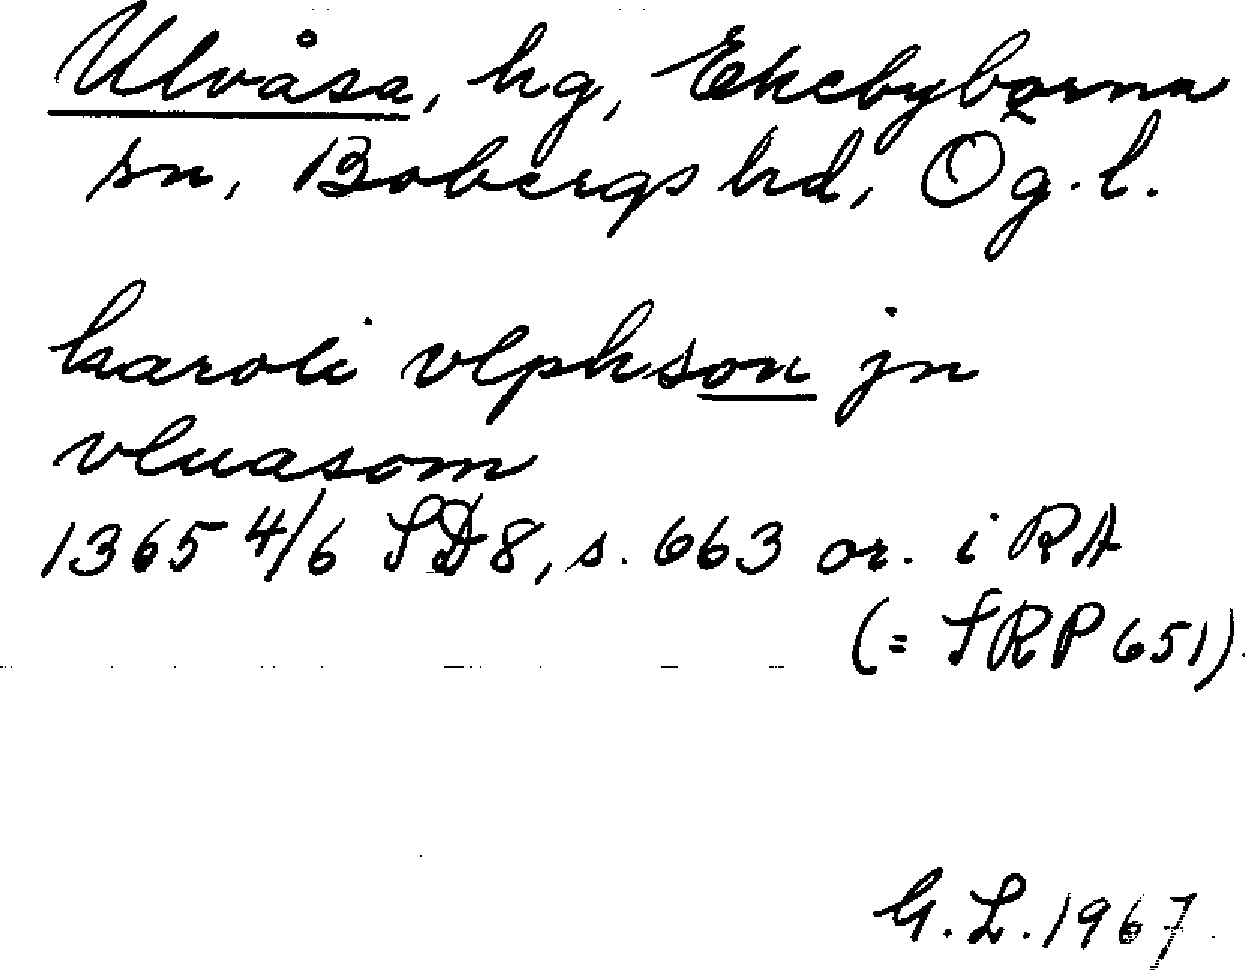 Ulvåsa, hg, Ekebyborna
sn, Bobergs hd, Ög.l.
karoli vlphson jn
vluasom
1365 4/6 SD8, s. 663 or. i RA
(= SRP 651).
G.L. 1967